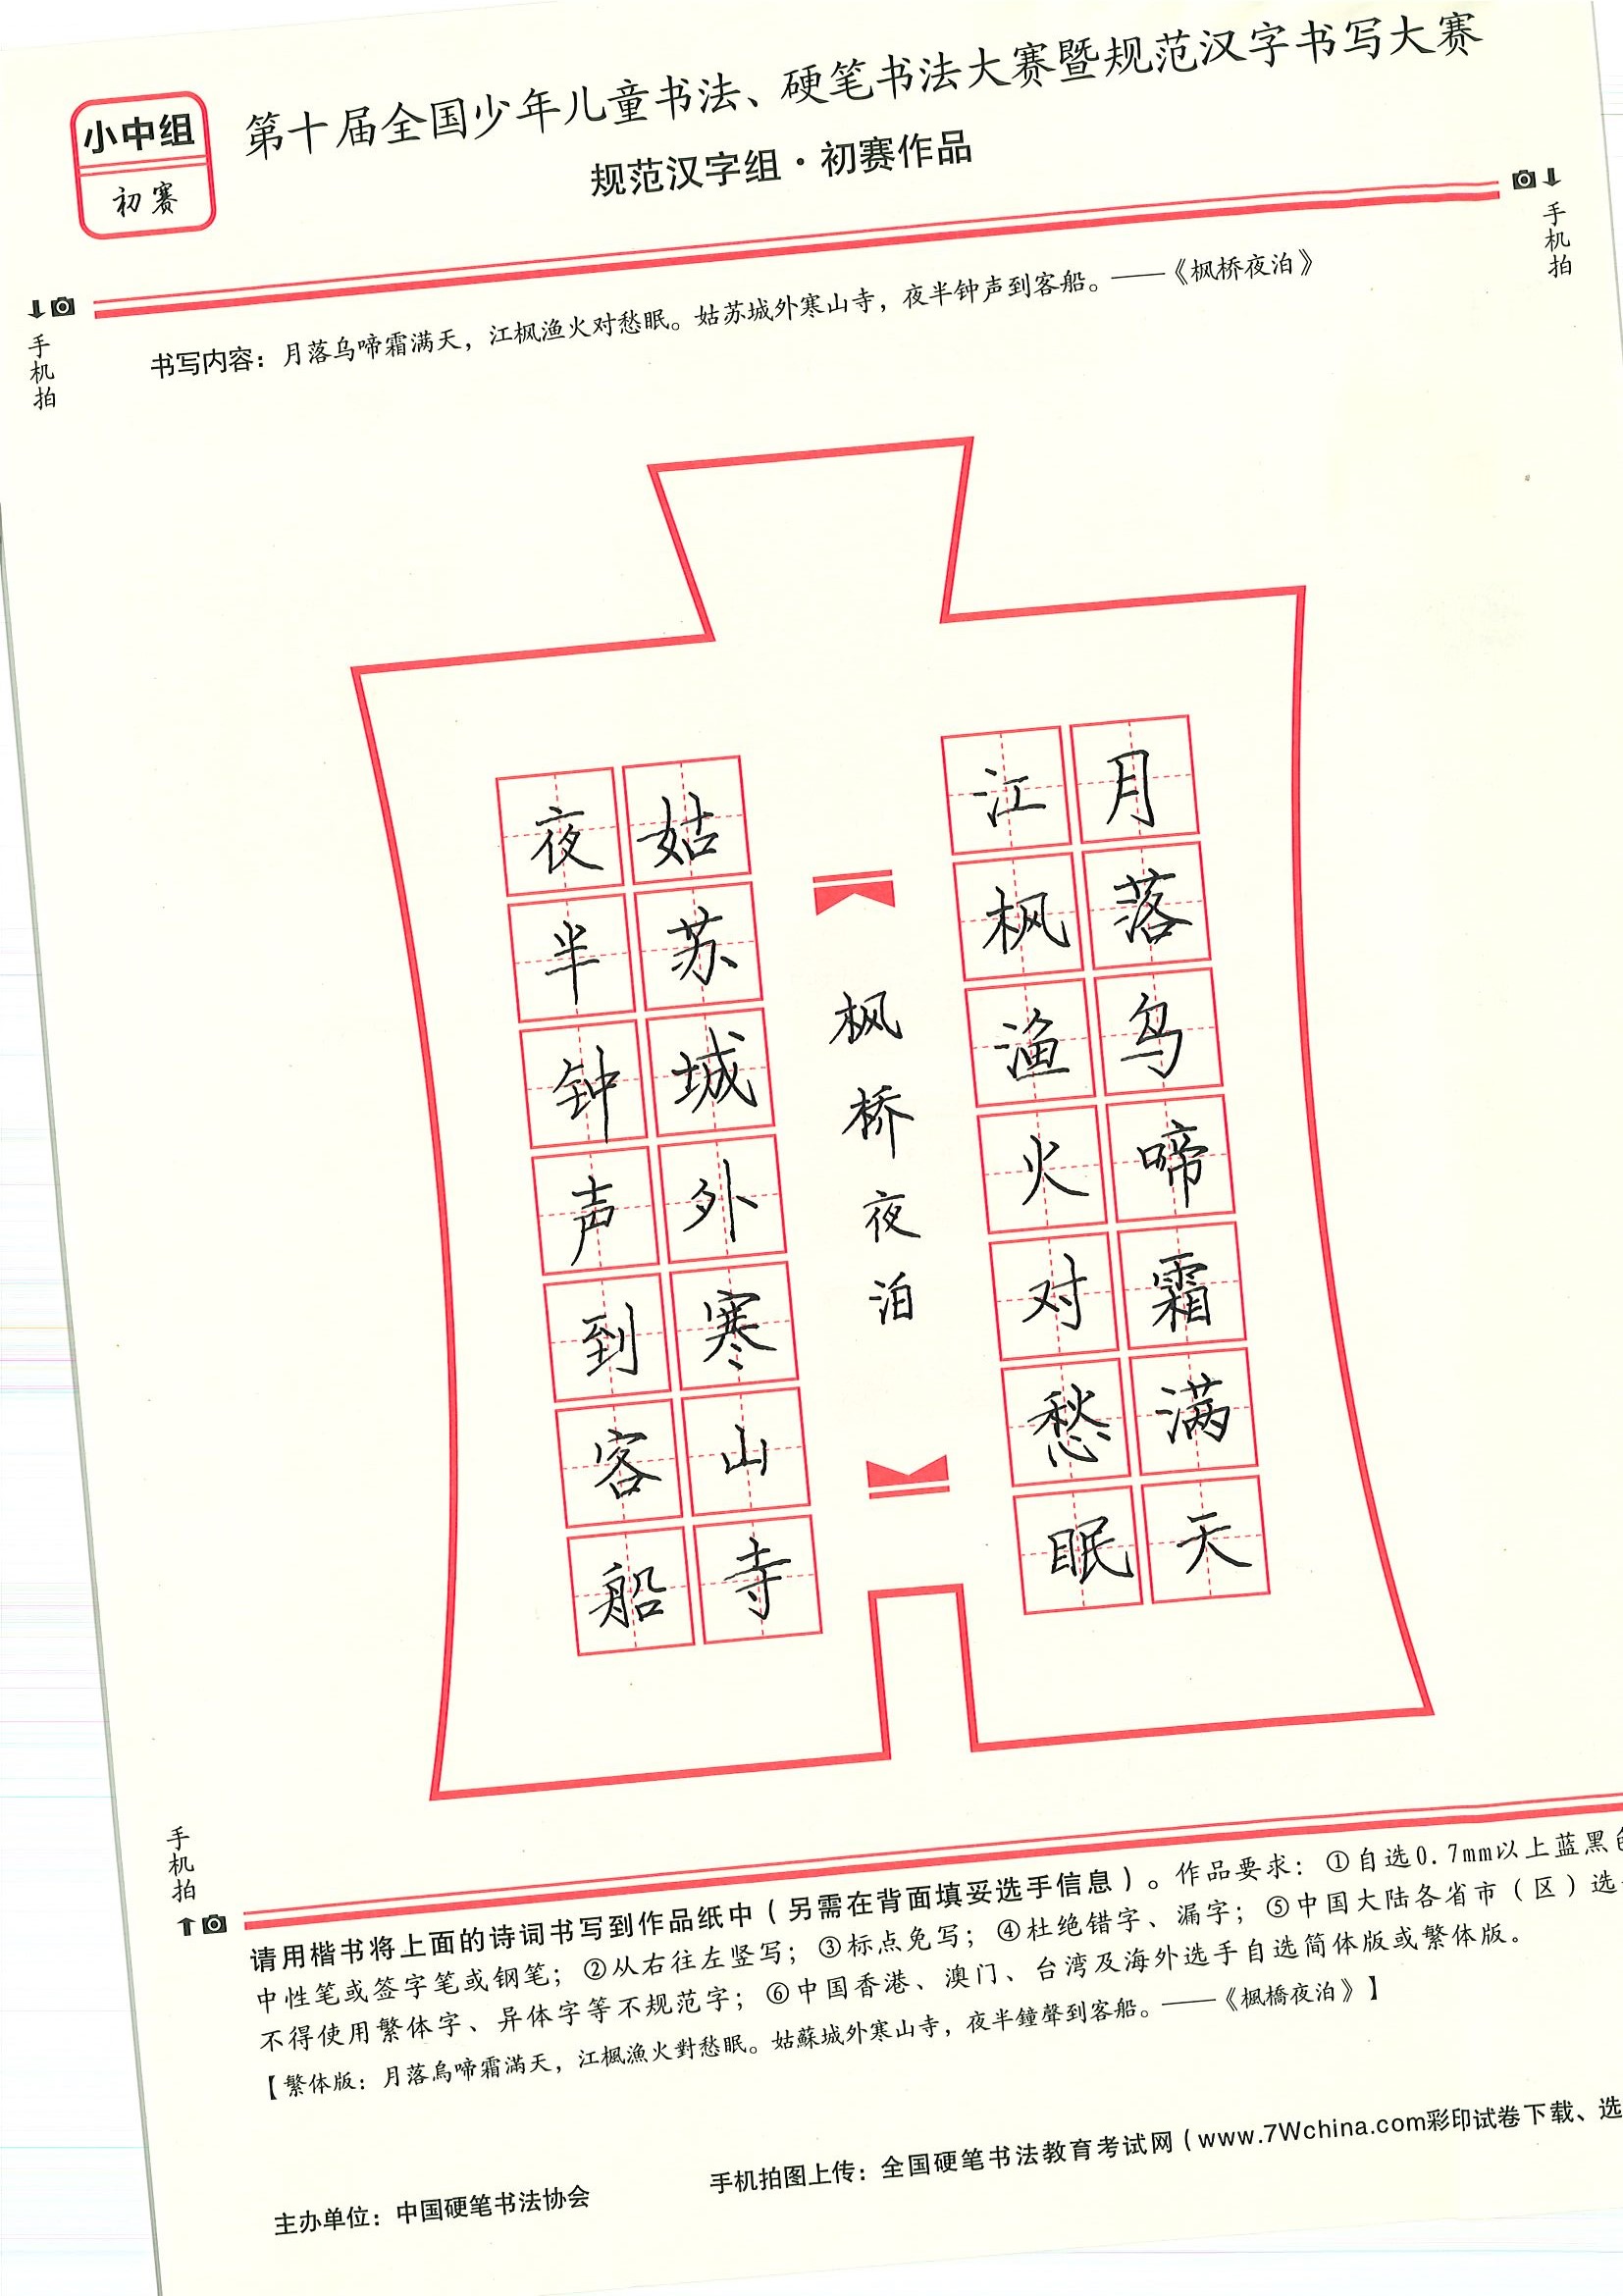 小中组
初赛
第十届全国少年儿童书法、硬笔书法大赛暨规范汉字书写大赛
规范汉字组·初赛作品
手机拍
手机拍
书写内容：月落乌啼霜满天，江枫渔火对愁眠。姑苏城外寒山寺，夜半钟声到客船。——《枫桥夜泊》
月落乌啼霜满天
江枫渔火对愁眠
枫桥夜泊
姑苏城外寒山寺
夜半钟声到客船
手机拍
请用楷书将上面的诗词书写到作品纸中（另需在背面填妥选手信息）。作品要求：①自选0.7mm以上蓝黑
中性笔或签字笔或钢笔；②从右往左竖写；③标点免写；④杜绝错字、漏字；⑤中国大陆各省市（区）选
不得使用繁体字、异体字等不规范字；⑥中国香港、澳门、台湾及海外选手自选简体版或繁体版。
【繁体版：月落烏啼霜滿天，江楓漁火對愁眠。姑蘇城外寒山寺，夜半鐘聲到客船。——《楓橋夜泊》】
主办单位：中国硬笔书法协会
手机拍图上传：全国硬笔书法教育考试网（www.7Wchina.com彩印试卷下载、选